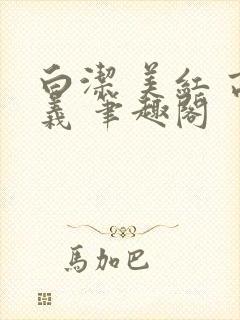 白潔 美紅 
義 筆趣閣
馬加巴